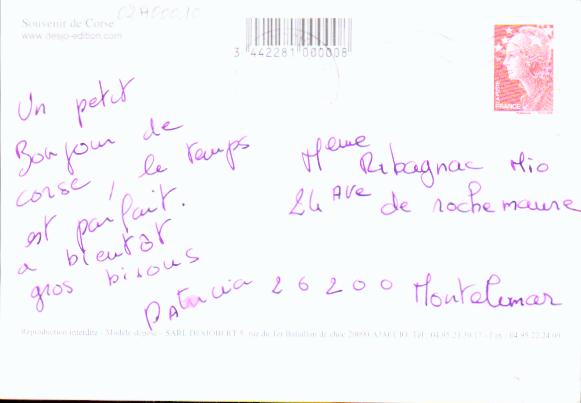 02A000.10
Souvenir de Corse
www.desjo-edition.com
3 442281 000008
FRANCE
Un petit
Bonjour de
corse, le temps
est parfait.
a bientôt
gros bisous
Patricia
Meme
Ribagnac Mio
24 Ave de rochemaure
26200 Montelimar
Reproduction interdite - Modèle déposé - SARL DESJOBERT 5, rue du 1er Bataillon de choc 20090 AJACCIO. Tél : 04.95.23.39.17 - Fax : 04.95.22.24.09